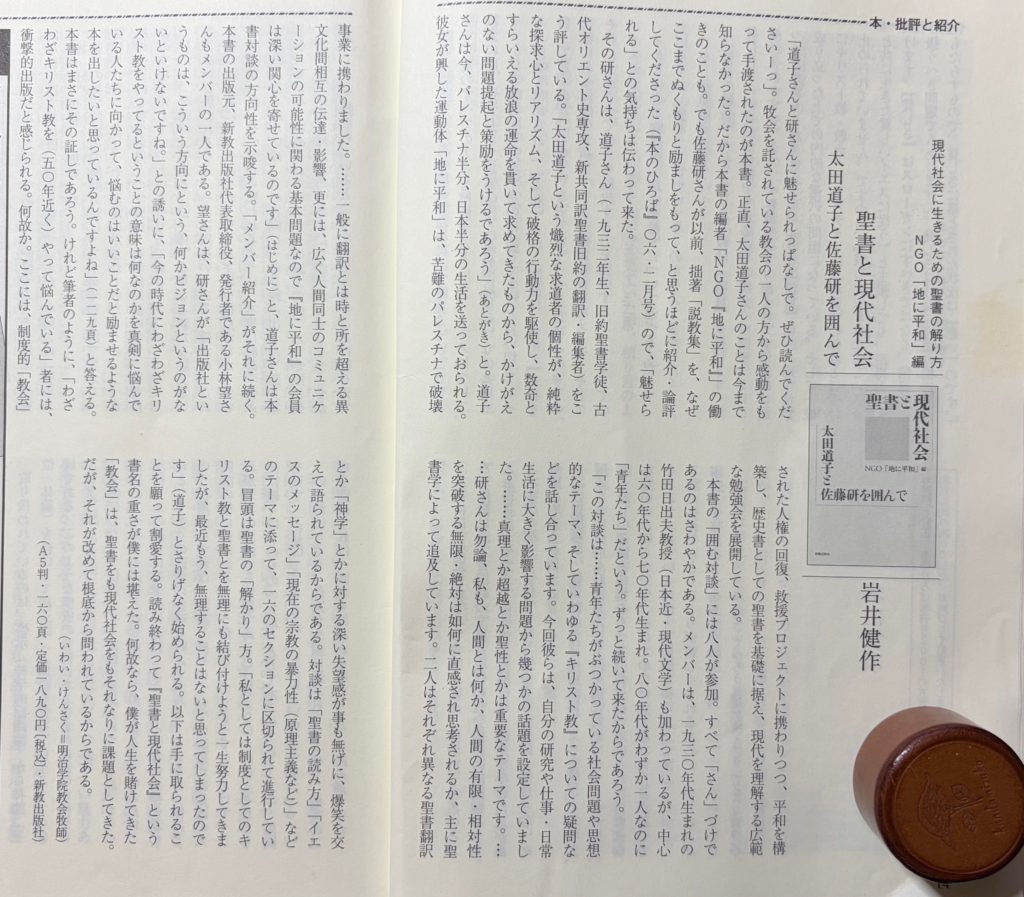 本・批評と紹介
現代社会に生きるための聖書の解り方
NGO「地に平和」編
聖書と現代社会
太田道子と佐藤研を囲んで
岩井健作
現代社会
聖書と
NGO「地に平和」編
太田道子と
佐藤研を囲んで
「道子さんと研さんに魅せられっぱなしで。ぜひ読んでくだ
さいーっ」。牧会を託されている教会の一人の方から感動をも
って手渡されたのが本書。正直、太田道子さんのことは今まで
知らなかった。だから本書の編者「NGO『地に平和』」の働
きのことも。でも佐藤研さんが以前、拙著『説教集』を、なぜ
ここまでぬくもりと励ましをもって、と思うほどに紹介・論評
してくださった（『本のひろば』〇六・二月号）ので、「魅せら
れる」との気持ちは伝わって来た。
その研さんは、道子さん（一九三二年生、旧約聖書学徒、古
代オリエント史専攻、新共同訳聖書旧約の翻訳・編集者）をこ
う評している。「太田道子という熾烈な求道者の個性が、純粋
な探求心とリアリズム、そして破格の行動力を駆使し、数奇と
すらいえる放浪の運命を貫いて求めてきたものから、かけがえ
のない問題提起と策励をうけるであろう」（あとがき）と。道子
さんは今、パレスチナ半分、日本半分の生活を送っておられる。
彼女が興した運動体「地に平和」は、苦難のパレスチナで破壊
された人権の回復、救援プロジェクトに携わりつつ、平和を構
築し、歴史書としての聖書を基礎に据え、現代を理解する広範
な勉強会を展開している。
本書の「囲む対談」には八人が参加。すべて「さん」づけで
あるのはさわやかである。メンバーは、一九三〇年代生まれの
竹田日出夫教授（日本近・現代文学）も加わっているが、中心
は六〇年代から七〇年代生まれ。八〇年代がわずか一人なのに
「青年たち」だという。ずっと続いて来たからであろう。
「この対談は……青年たちがぶつかっている社会問題や思想
的なテーマ、そしていわゆる『キリスト教』についての疑問な
どを話し合っています。今回彼らは、自分の研究や仕事・日常
生活に大きく影響する問題から幾つかの話題を設定していまし
た。……真理とか超越とか聖性とかは重要なテーマです。…
…研さんは勿論、私も、人間とは何か、人間の有限・相対性
を突破する無限・絶対は如何に直感され思考されるか、主に聖
書学によって追及しています。二人はそれぞれ異なる聖書翻訳
14
事業に携わりました。……一般に翻訳とは時と所を超える異
文化間相互の伝達・影響、更には、広く人間同士のコミュニケ
ーションの可能性に関わる基本問題なので『地に平和』の会員
は深い関心を寄せているのです」（はじめに）と、道子さんは本
書対談の方向性を示唆する。「メンバー紹介」がそれに続く。
本書の出版元、新教出版社代表取締役、発行者である小林望さ
んもメンバーの一人である。望さんは、研さんが「出版社とい
うものは、こういう方向にという、何かビジョンというのがな
いといけないですね。」との誘いに、「今の時代にわざわざキリ
スト教をやってるということの意味は何なのかを真剣に悩んで
いる人たちに向かって、悩むのはいいことだと励ませるような
本を出したいと思っているんですよね」（一二九頁）と答える。
本書はまさにその証しであろう。けれど筆者のように、「わざ
わざキリスト教を（五〇年近く）やって悩んでいる」者には、
衝撃的出版だと感じられる。何故か。ここには、制度的「教会」
とか「神学」とかに対する深い失望感が事も無げに、爆笑を交
えて語られているからである。対談は「聖書の読み方」「イエ
スのメッセージ」「現在の宗教の暴力性（原理主義など）」など
のテーマに添って、一六のセクションに区切られて進行してい
る。冒頭は聖書の「解かり」方。「私としては制度としてのキ
リスト教と聖書とを無理にも結び付けようと一生努力してきま
したが、最近もう、無理することはないと思ってしまったので
す」（道子）とさりげなく始められる。以下は手に取られるこ
とを願って割愛する。読み終わって『聖書と現代社会』という
書名の重さが僕には堪えた。何故なら、僕が人生を賭けてきた
「教会」は、聖書をも現代社会をもそれなりに課題としてきた。
だが、それが改めて根底から問われているからである。
（いわい・けんさく＝明治学院教会牧師）
（A5判・二六〇頁・定価一八九〇円［税込］・新教出版社）